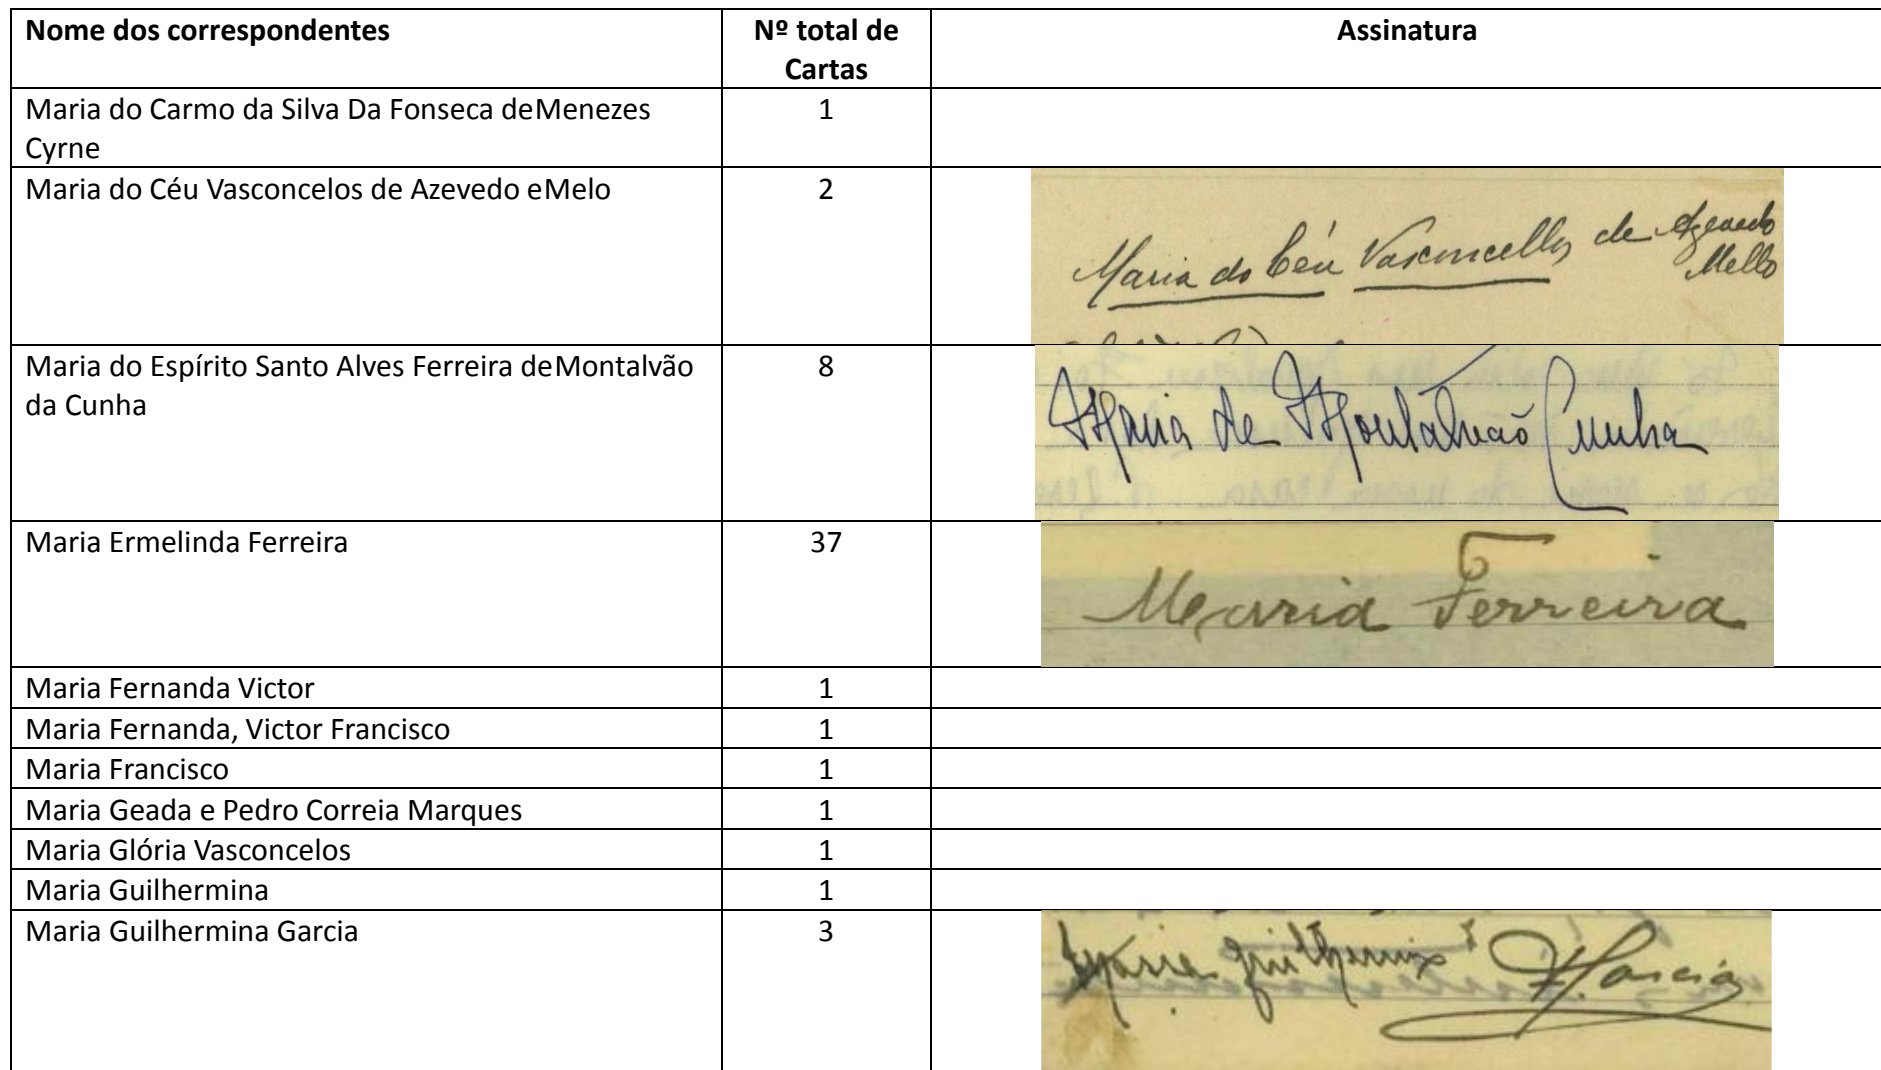 Nome dos correspondentes
Nº total de
Cartas
Assinatura
Maria do Carmo da Silva Da Fonseca deMenezes
Cyrne
1
Maria do Céu Vasconcelos de Azevedo eMelo
2
Maria do Céu Vasconcellos de Azevedo
Mello
Maria do Espírito Santo Alves Ferreira deMontalvão
da Cunha
8
Maria de Montalvão Cunha
Maria Ermelinda Ferreira
37
Maria Ferreira
Maria Fernanda Victor
1
Maria Fernanda, Victor Francisco
1
Maria Francisco
1
Maria Geada e Pedro Correia Marques
1
Maria Glória Vasconcelos
1
Maria Guilhermina
1
Maria Guilhermina Garcia
3
Maria Guilhermina Garcia